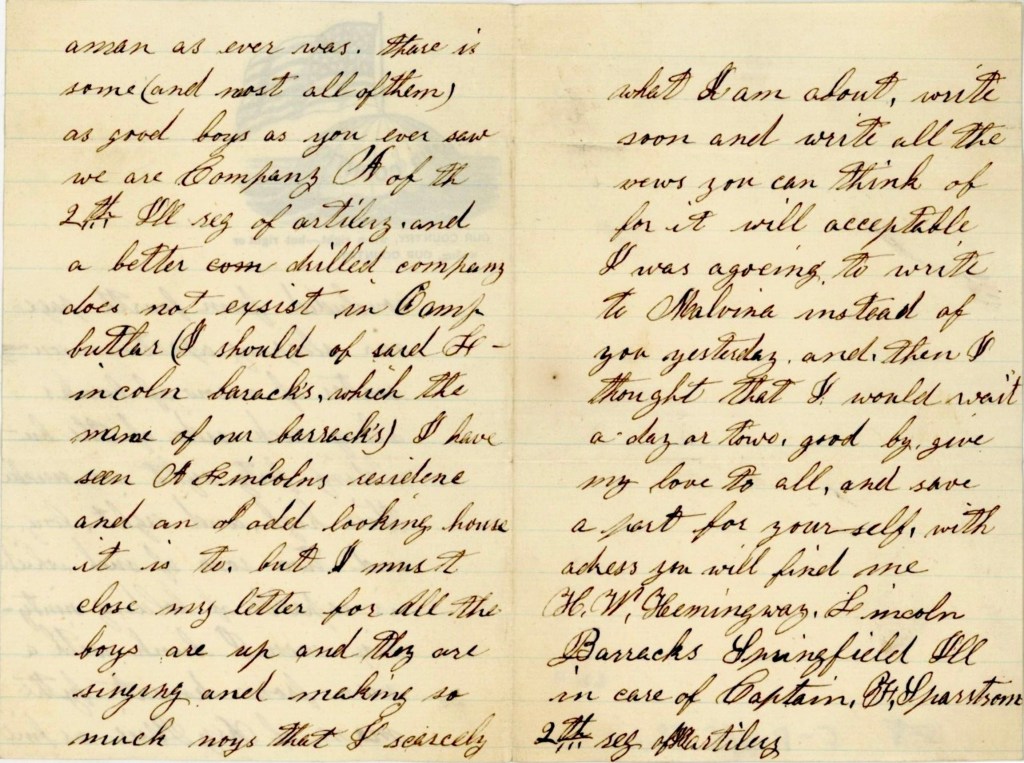 aman as ever was. thare is
some (and most all of them)
as good boys as you ever saw
we are Company A of th
2th Ill reg of artilery. and
a better com drilled company
does not exsist in Camp
buttlar (I should of said L-
incoln barack's, which the
name of our barrack's) I have
seen A Lincolns residene
and an odd looking house
it is to. but I must
close my letter for all the
boys are up and they are
singing and making so
much noys that I scarcely
what I am about, write
soon and write all the
news you can think of
for it will acceptable
I was agoeing to write
to Malvina instead of
you yesterday. and. then I
thought that I would wait
a day or towo. good by. give
my love to all, and save
a part for your self, with
adress you will find me
H. W, Hemingway. Lincoln
Barracks Springfield Ill
in care of Captain,
2th reg of artilery